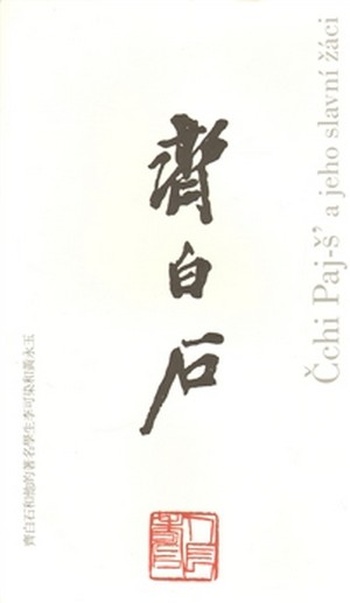 齊白石
Čchi Paj-š’ a jeho slavní žáci
齊白石和他的著名學生李可染和黃永玉